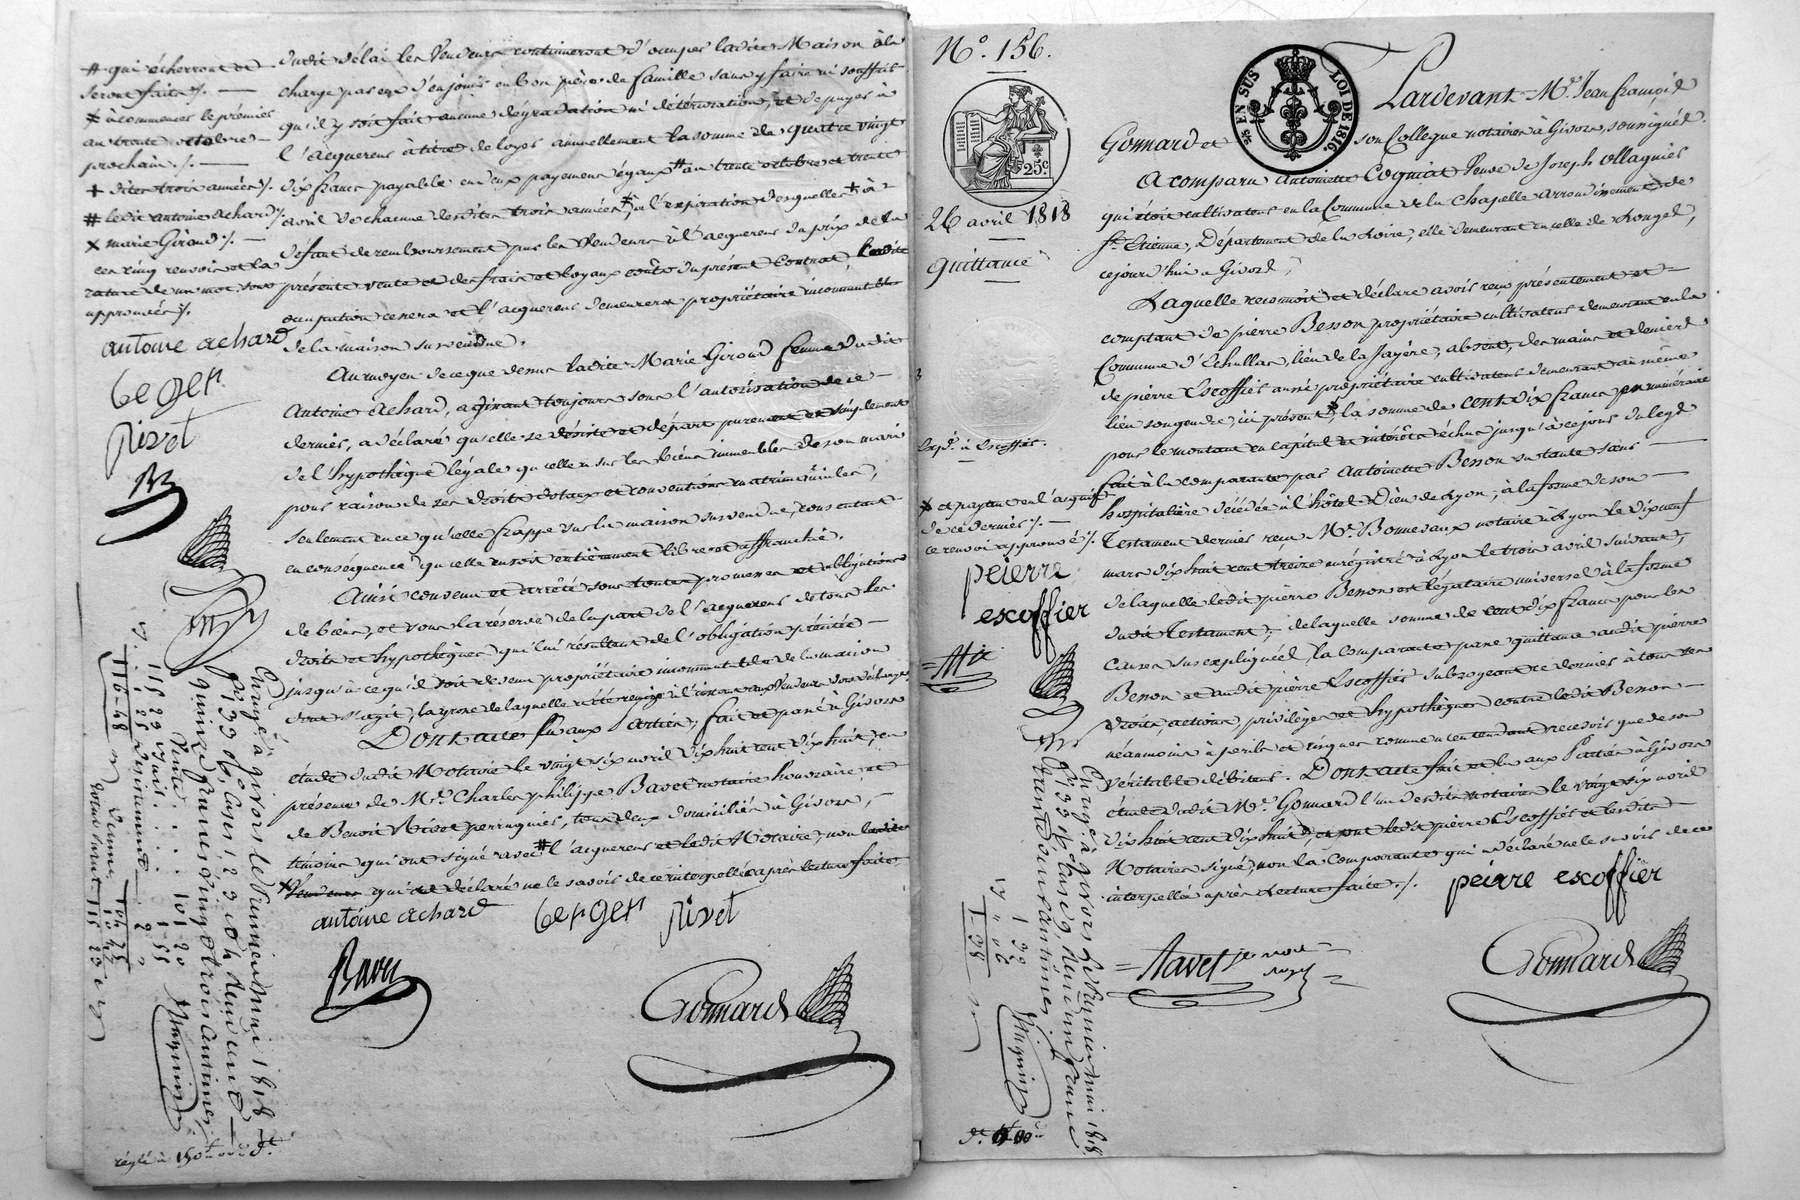 # qui écherront et
seront faits /. —
* à commencer le premier
au trente octobre
prochain /. —
+ dites trois années /.
# ledit antoine achard /.
x marie Giroud /. —
ces cinq renvois et la
rature de un mot sous
approuvés /.
antoine achard
Berger
Rivol
dudit délai les Vendeurs continueront d'occuper ladite Maison à la
charge par eux d'en jouir en bon père de famille sans y faire ni souffrir
qu'il y soit fait aucune dégradation ni détérioration, et de payer à
l'acquéreur à titre de loyer annuellement la somme de quatre vingt
dix francs payable en deux payemens égaux # au trente octobre et trente
avril de chacune desdites trois années * à l'expiration desquelles + à
défaut de remboursement par les Vendeurs à l'acquéreur du prix de la
présente vente et des frais et loyaux coûts du présent Contrat, ladite
occupation cessera et l'acquéreur demeurera propriétaire incommutable
de la maison susvendue.
Au moyen de ce que dessus ladite Marie Giroud femme dudit
Antoine Achard, agissant toujours sous l'autorisation de ce
dernier, a déclaré qu'elle se désiste et départ purement et simplement
de l'hypothèque légale qu'elle a sur les biens immeubles de son mari
pour raison de ses droits dotaux et conventions matrimoniales,
seulement en ce qu'elle frappe sur la maison susvendue, consentant
en conséquence qu'elle en soit entièrement libre et affranchie.
Ainsi convenu et arrêté sous toutes promesses et obligations
de biens, et sous la réserve de la part de l'acquéreur de tous les
droits et hypothèques qui lui résultent de l'obligation précitée
jusqu'à ce qu'il soit de seul propriétaire incommutable de la maison
dont s'agit, la grosse de laquelle
Dont acte lu aux Parties, fait et passé à Givors
étude dudit Notaire le vingt six avril dix huit cent dix huit, en
présence de Mrs. Charles philippe Bavet notaire honoraire, et
de Benoit Rivol perruquier, tous deux domiciliés à Givors,
témoins qui ont signé avec # l'acquéreur et ledit Notaire, non ladite
x Vendeurs qui ont déclaré ne le savoir de ce interpellée après lecture faite
antoine achard Berger Rivol
Bavet
Gonnard
Enregé. à givors le premier mai 1818
fo. 33 Ro. Cases 1 2 3 et 4 Reçu cent
quinze francs vingt trois centimes
Vente . . . 101 20
115 23
116-48
No. 156.
25c.
26 avril 1818
Quittance
Expn. à Escoffier.
* et payant en l'acquit
de ce dernier /. —
ce renvoi approuvé /.
peierre
exoffier
TIM. EN SUS LOI DE 1816.
Pardevant Me. Jean françois
Gonnard et son Collegue notaires à Givors, soussignés.
A comparu Antoinette Cogniat Veuve de Joseph Ollagnier
qui étoit cultivateur en la Commune de la Chapelle arrondissement de
St. Etienne, Département de la Loire, elle demeurant en celle de Longes,
cejourd'hui à Givors,
Laquelle reconnoit et déclare avoir reçu présentement et
comptant de pierre Besson propriétaire cultivateur demeurant en la
Commune d'Echallas, lieu de la fayère, absent, des mains et deniers
de pierre Escoffier aussi propriétaire cultivateur demeurant au même
lieu son gendre, ici présent *, la somme de cent dix francs en numéraire
pour le montant en capital et intérêts échus jusqu'à ce jour du legs
fait à la comparante par Antoinette Besson sa tante sans —
hospitalière décédée à l'hôtel Dieu de Lyon, à la forme de son
Testament dernier reçu Me. Bonnevaux notaire à Lyon le dix neuf
mars dix huit cent treize enregistré à Lyon le trois avril suivant,
de laquelle ledit pierre Besson est légataire universel à la forme
dudit Testament; de laquelle somme de cent dix francs pour les
causes sus expliquées, la comparante passe quittance audit pierre
Besson et audit pierre Escoffier subrogeant ce dernier à tous ses
droits, actions, privilèges et hypothèques contre ledit Besson
néanmoins à perils et risques comme n'entendant recevoir que de son
véritable débiteur. Dont acte fait et lu aux Parties à Givors
étude dudit Me. Gonnard l'un desdits notaires le vingt six avril
dix huit cent dix huit, et ont ledit pierre Escoffier et lesdits
Notaires signé, non la Comparante qui a déclaré ne le savoir de ce
interpellée après Lecture faite. /.
peirre exoffier
Gonnard
Enregé. à givors le premier mai 1818
fo. 33 Ro. Case 9. Reçu un franc